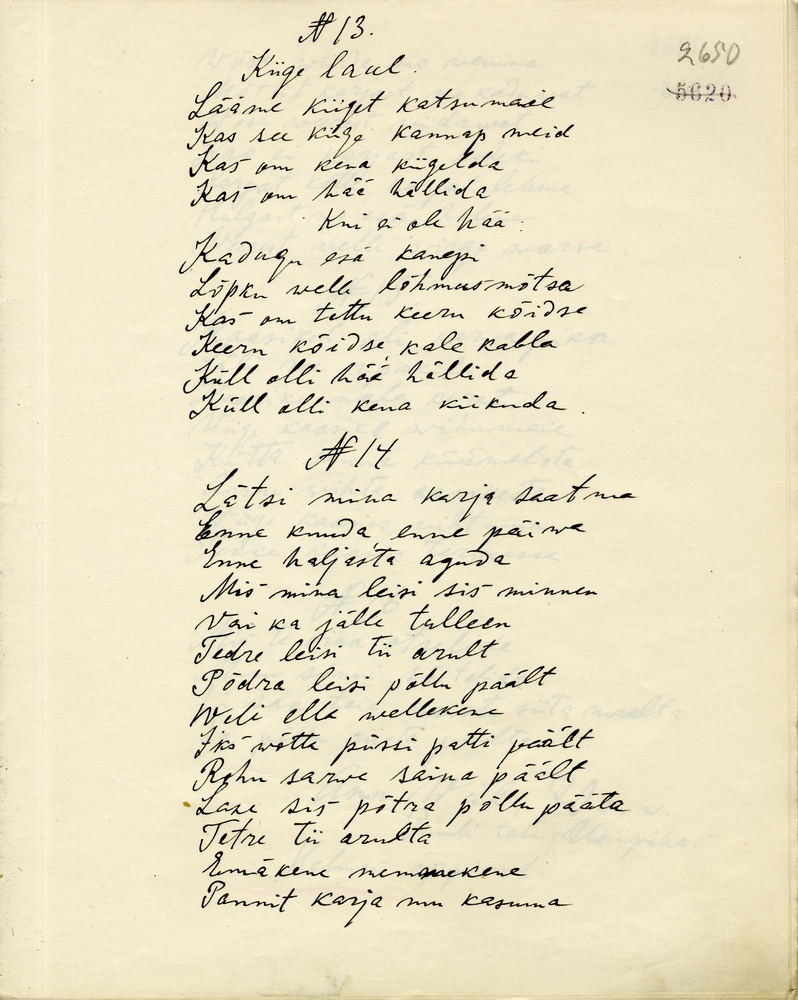 № 13.
2650
Kiige laul.
5620
Lääme kiiget katsumaie
Kas see kiige kannap meid
Kas om kena kiigelda
Kas om hää hällida
Kui ei ole hää:
Kadugu esä kanepi
Lõpku welle lõhmus-mõtsa
Kas om tettu keeru kõidse
Keeru kõidse, kale kabla
Küll olli hää hällida
Küll olli kena kiikuda.
№ 14
Lätsi mina karja saatma
Enne kuuda, enne päiwa
Enne haljasta aguda
Mis mina leisi sis minnen
Vai ka jälle tulleen
Tedre leisi tii arult
Põdra leisi põllu päält
Weli ella wellekene
Iks wõtta püssi patti päält
Rohu sarwe saina päält
Lase sis põtra põllu pääta
Tetre tii arulta
Emäkene memmekene
Pannit karja mu kasuma